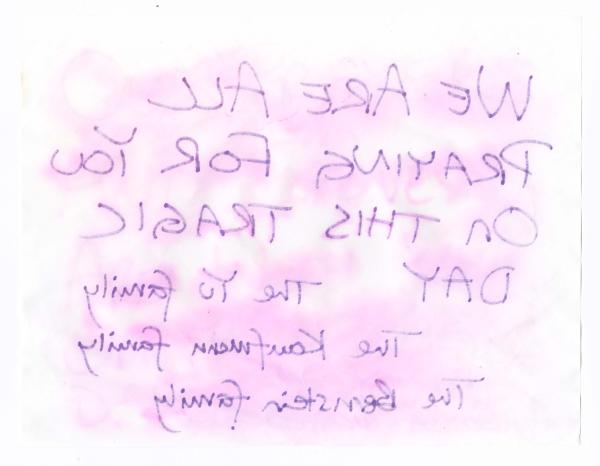 WE ARE ALL
PRAYING FOR YOU
ON THIS TRAGIC
DAY The Yu family
The Kaufmann family
The Bernstein family